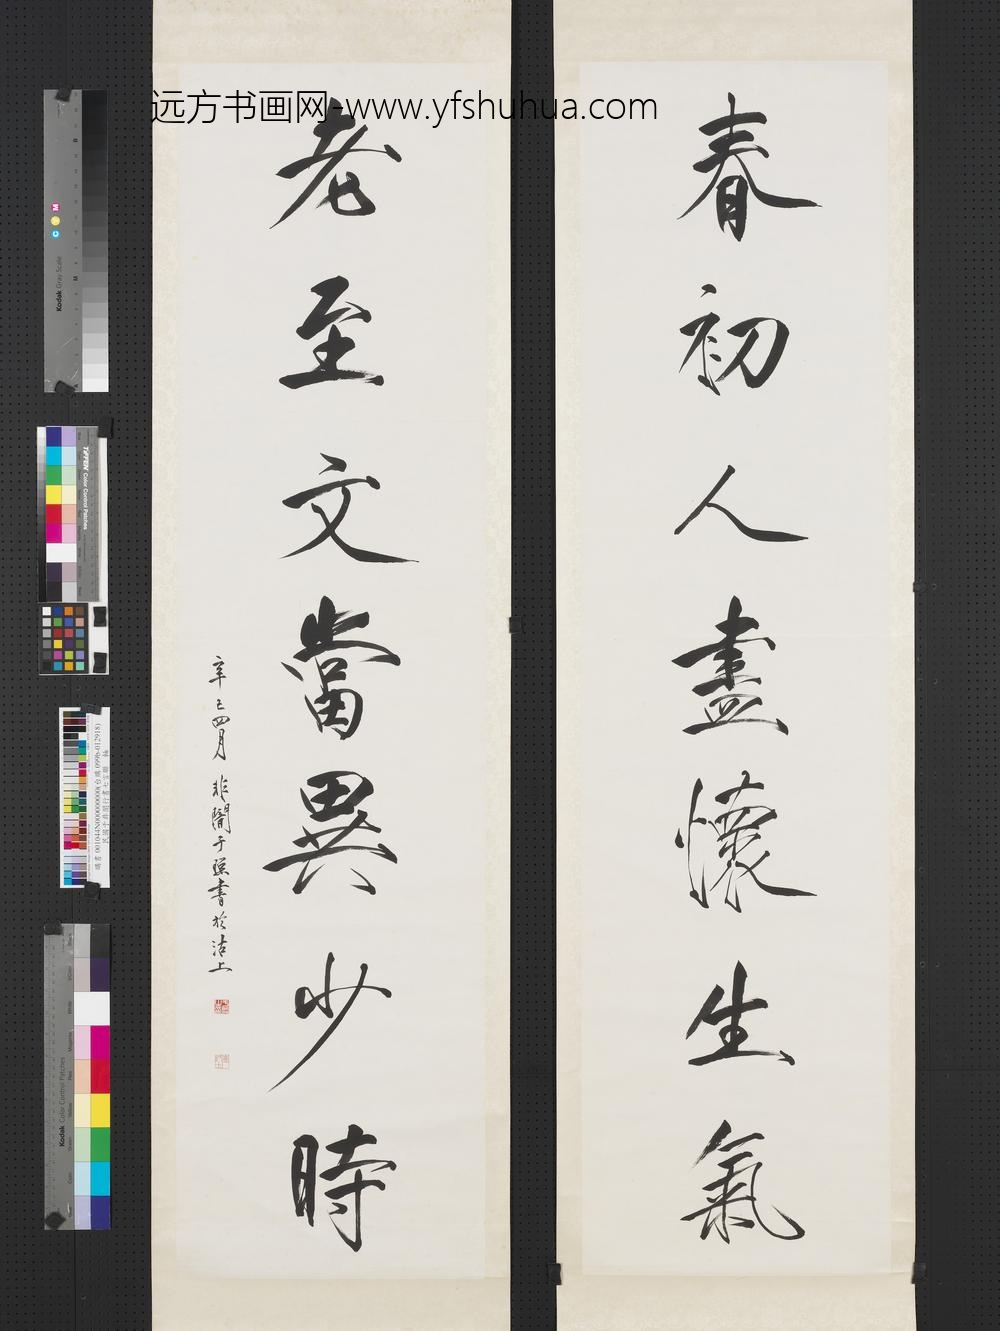 远方书画网-www.yfshuhua.com
春初人盡懷生氣
老至文當異少時
辛巳四月 非闇于照書於沽上
Kodak Gray Scale
C Y M
Tiffen Color Control Patches
Kodak Color Control Patches
民國于非闇行書七言聯 軸